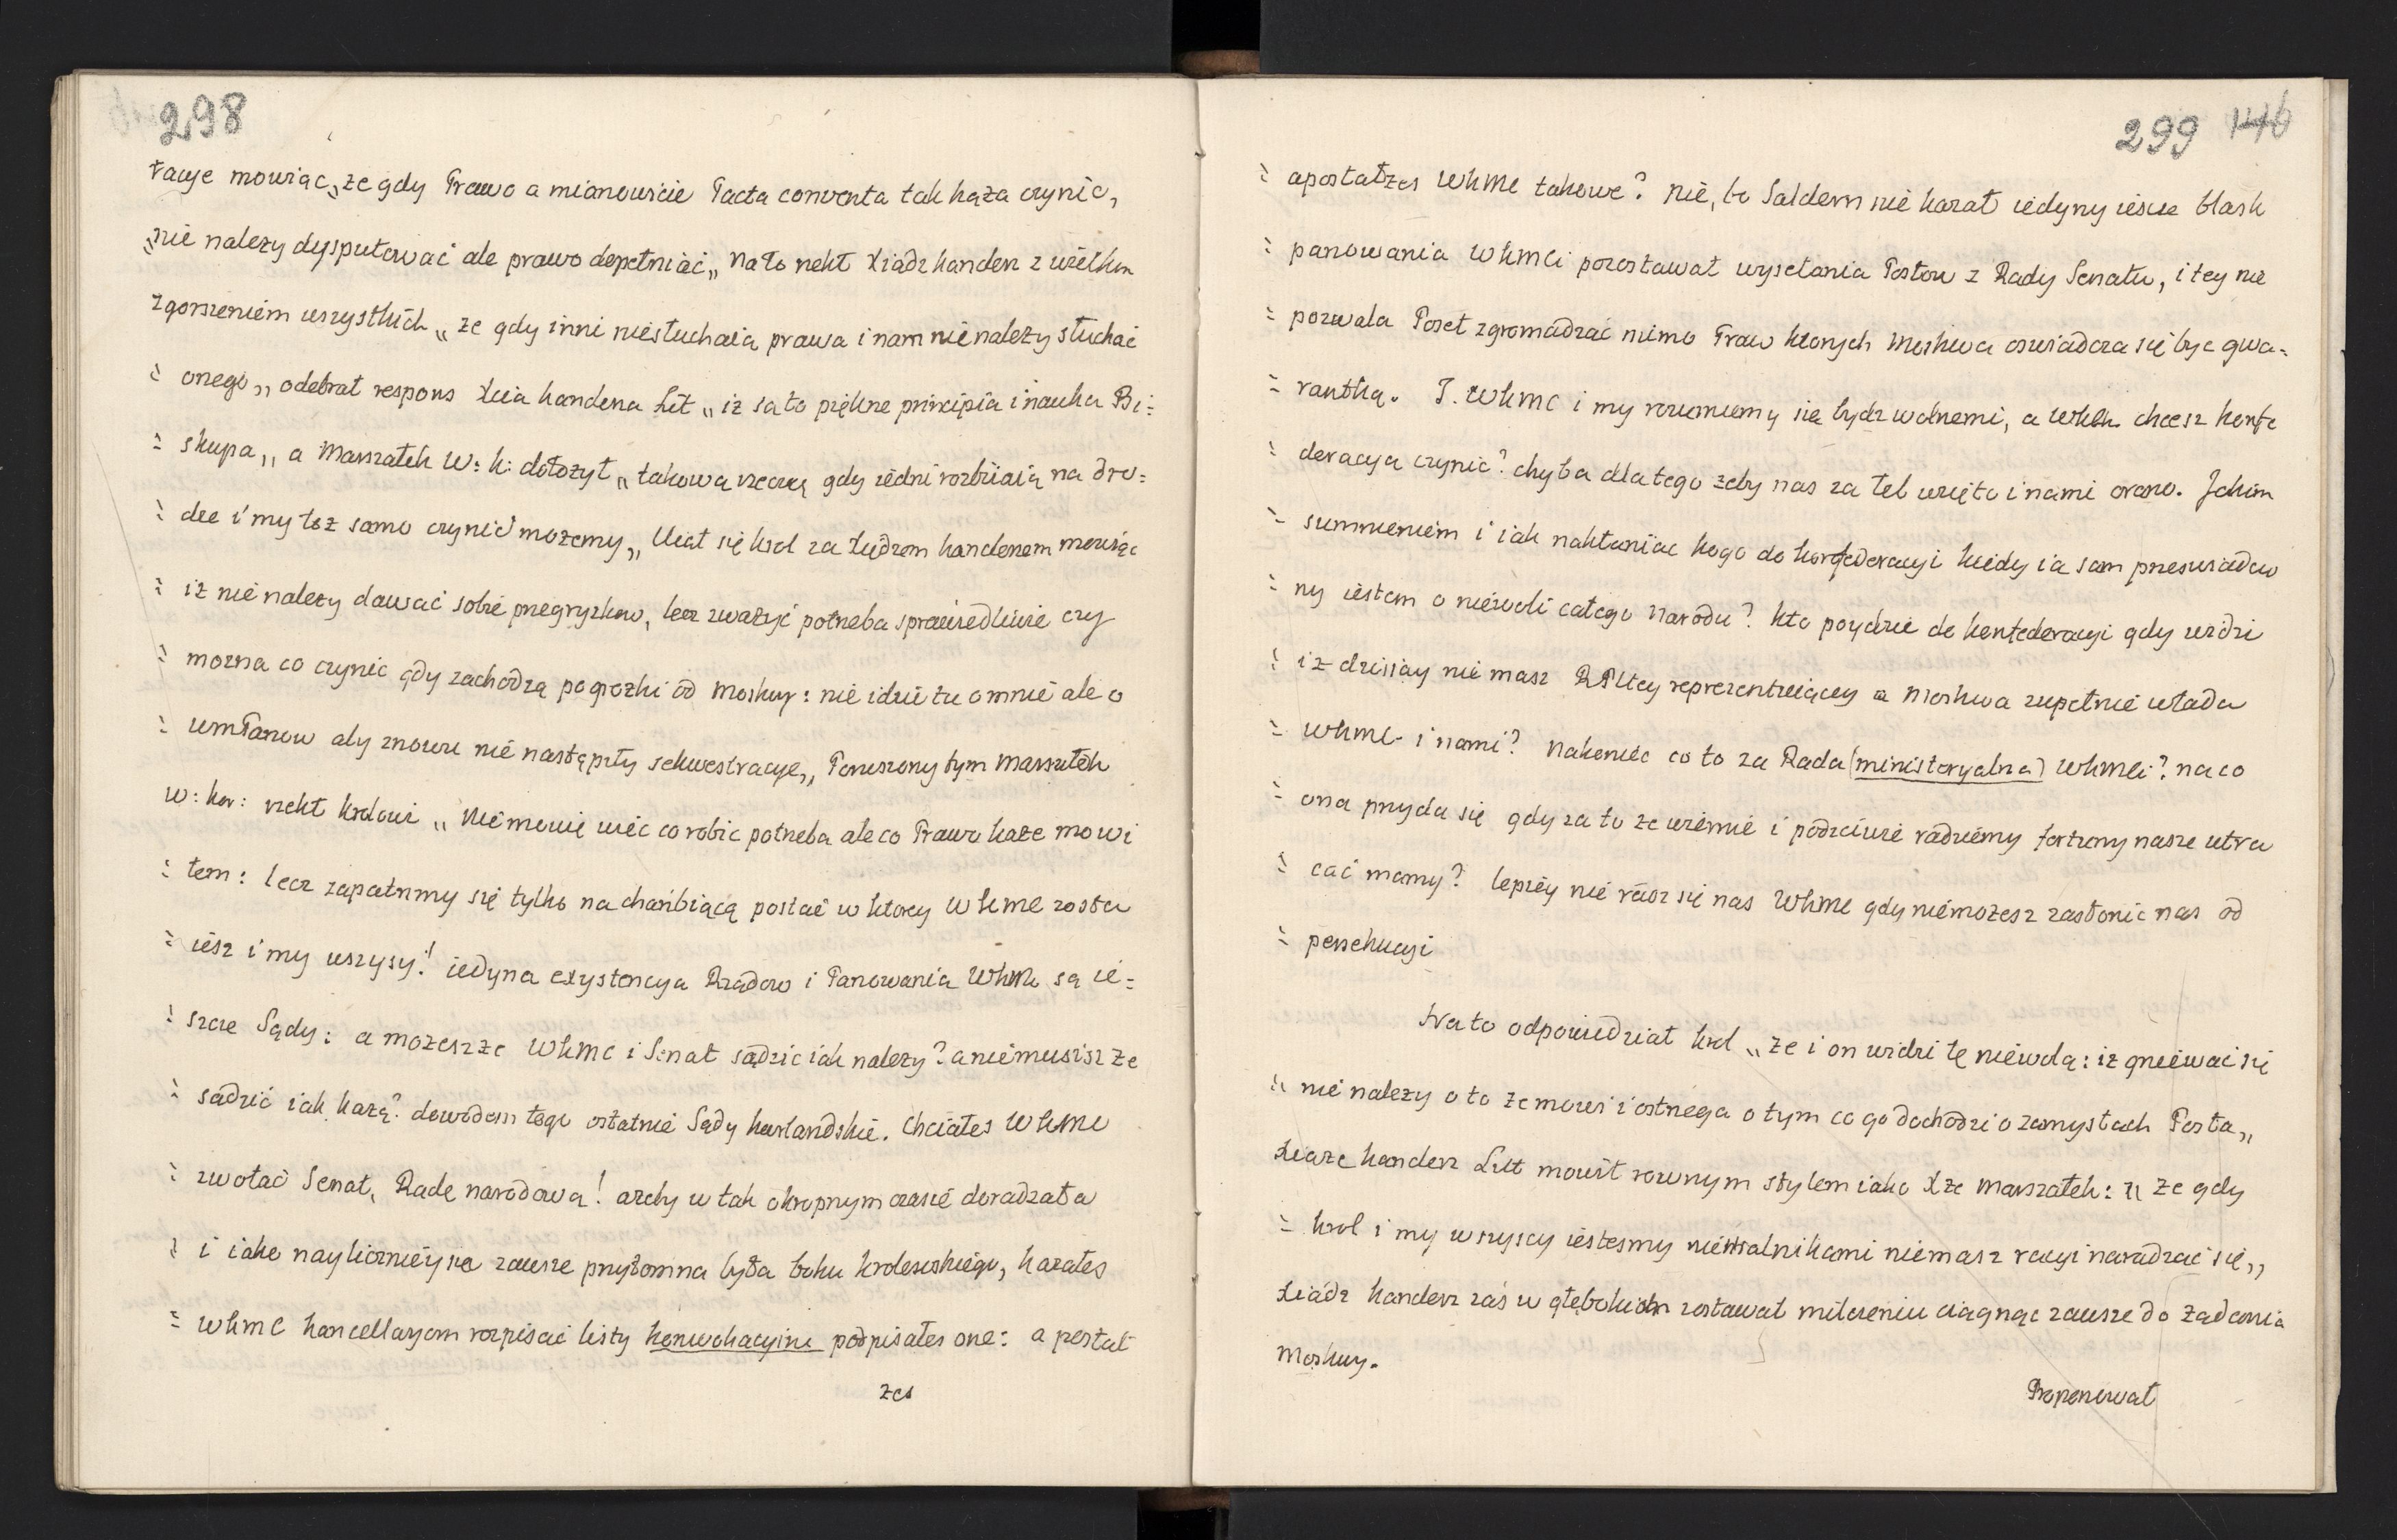 298
racye mowiąc „ze gdy Prawo a mianowicie Pacta conventa tak każa czynić,
„nie nalezy dysputować ale prawo dopełniać„ na to rzekł Xiądz kanclerz z wielkim
zgorszeniem wszystkich „ze gdy inni niesłuchaią prawa i nam nie nalezy słuchać
: onego„ odebrał respons Xcia kanclerza Lit „iz sa to piękne principia i nauka Bi:
: skupa„ a Marszałek W: k: dołożył „takową rzeczą gdy iedni rozbiiaią na dro:
: dze i my toz samo czynić mozemy„ Uiął się krol za Xiędzem kanclerzem mowiąc
: iz nie nalezy dawać sobie przegryzkow, lecz zwazyć potrzeba sprawiedliwie czy
: mozna co czynic gdy zachodzą pogrozki od Moskwy: nie idzie tu o mnie ale o
: WmPanow aby znowu nie nastąpiły sekwestracye„ Poruszony tym Marszałek
w: kor: rzekł krolowi „Nie mowię więc co robic potrzeba ale co Prawo kaze mowi
: łem: lecz zapatrzmy się tylko na chańbiącą postać w ktorey WKMC zosta
: iesz i my wszyscy! iedyna exystencya Rządow i Panowania WKMci są ie:
: szcze Sądy: a mozeszze WKMC i Senat sądzic iak nalezy? a niemusisz ze
: sądzić iak każą? dowodem tego ostatnie Sądy kurlandskie. Chciałes WKMC
: zwołać Senat, Radę narodową! azeby w tak okropnym czasie doradzała
: i iako nayliczniejsza zawsze przytomna była boku krolewskiego, kazałes
: WKMC kancellaryom rozpisać listy konwokacyine podpisałes one: a postał
zes
299 146
: apostałzes WKMC takowe? nie, bo Saldern nie kazał iedyny ieszcze blask
: panowania WKMCi pozostawał wysełania Posłow z Rady Senatu, i tey nie
: pozwala Poseł zgromadzać mimo Praw ktorych Moskwa oswiadcza się byc gwa:
: rantką. I WKMC i my rozumiemy sie bydz wolnemi, a WKM chcesz konfe
: deracya czynic? chyba dla tego zeby nas za łeb wzięto i nami orano. Jakim
: summieniem i iak nakłaniac kogo do konfederacyi kiedy ia sam przeswiadczo
: ny iestem o niewoli całego narodu? kto poydzie do konfederacyi gdy widzi
: iz dzisiay nie masz RPltey reprezentuiącey a Moskwa zupełnie włada
: WKMC i nami? nakoniec co to za Rada (ministeryalna) WKMCi? na co
: ona przyda się gdy za to ze wiernie i podzciwie radziemy fortuny nasze utra
: cać mamy? lepiey nie radz się nas WKMC gdy niemożesz zasłonic nas od
: persekucyi
Na to odpowiedział krol „ze i on widzi tę niewolą: iz gniewać się
„ nie nalezy o to ze mowi i ostrzega o tym co go dochodzi o zamysłach Posła„
Xiaze kanclerz Litt mowił rownym stylem iako Xze Marszałek: „ ze gdy
: krol i my wszyscy iestesmy niewolnikami niemasz racyi naradzać się„
Xiądz kanclerz zaś w głębokim zostawał milczeniu ciągnąc zawsze do żądania
Moskwy.
Proponował